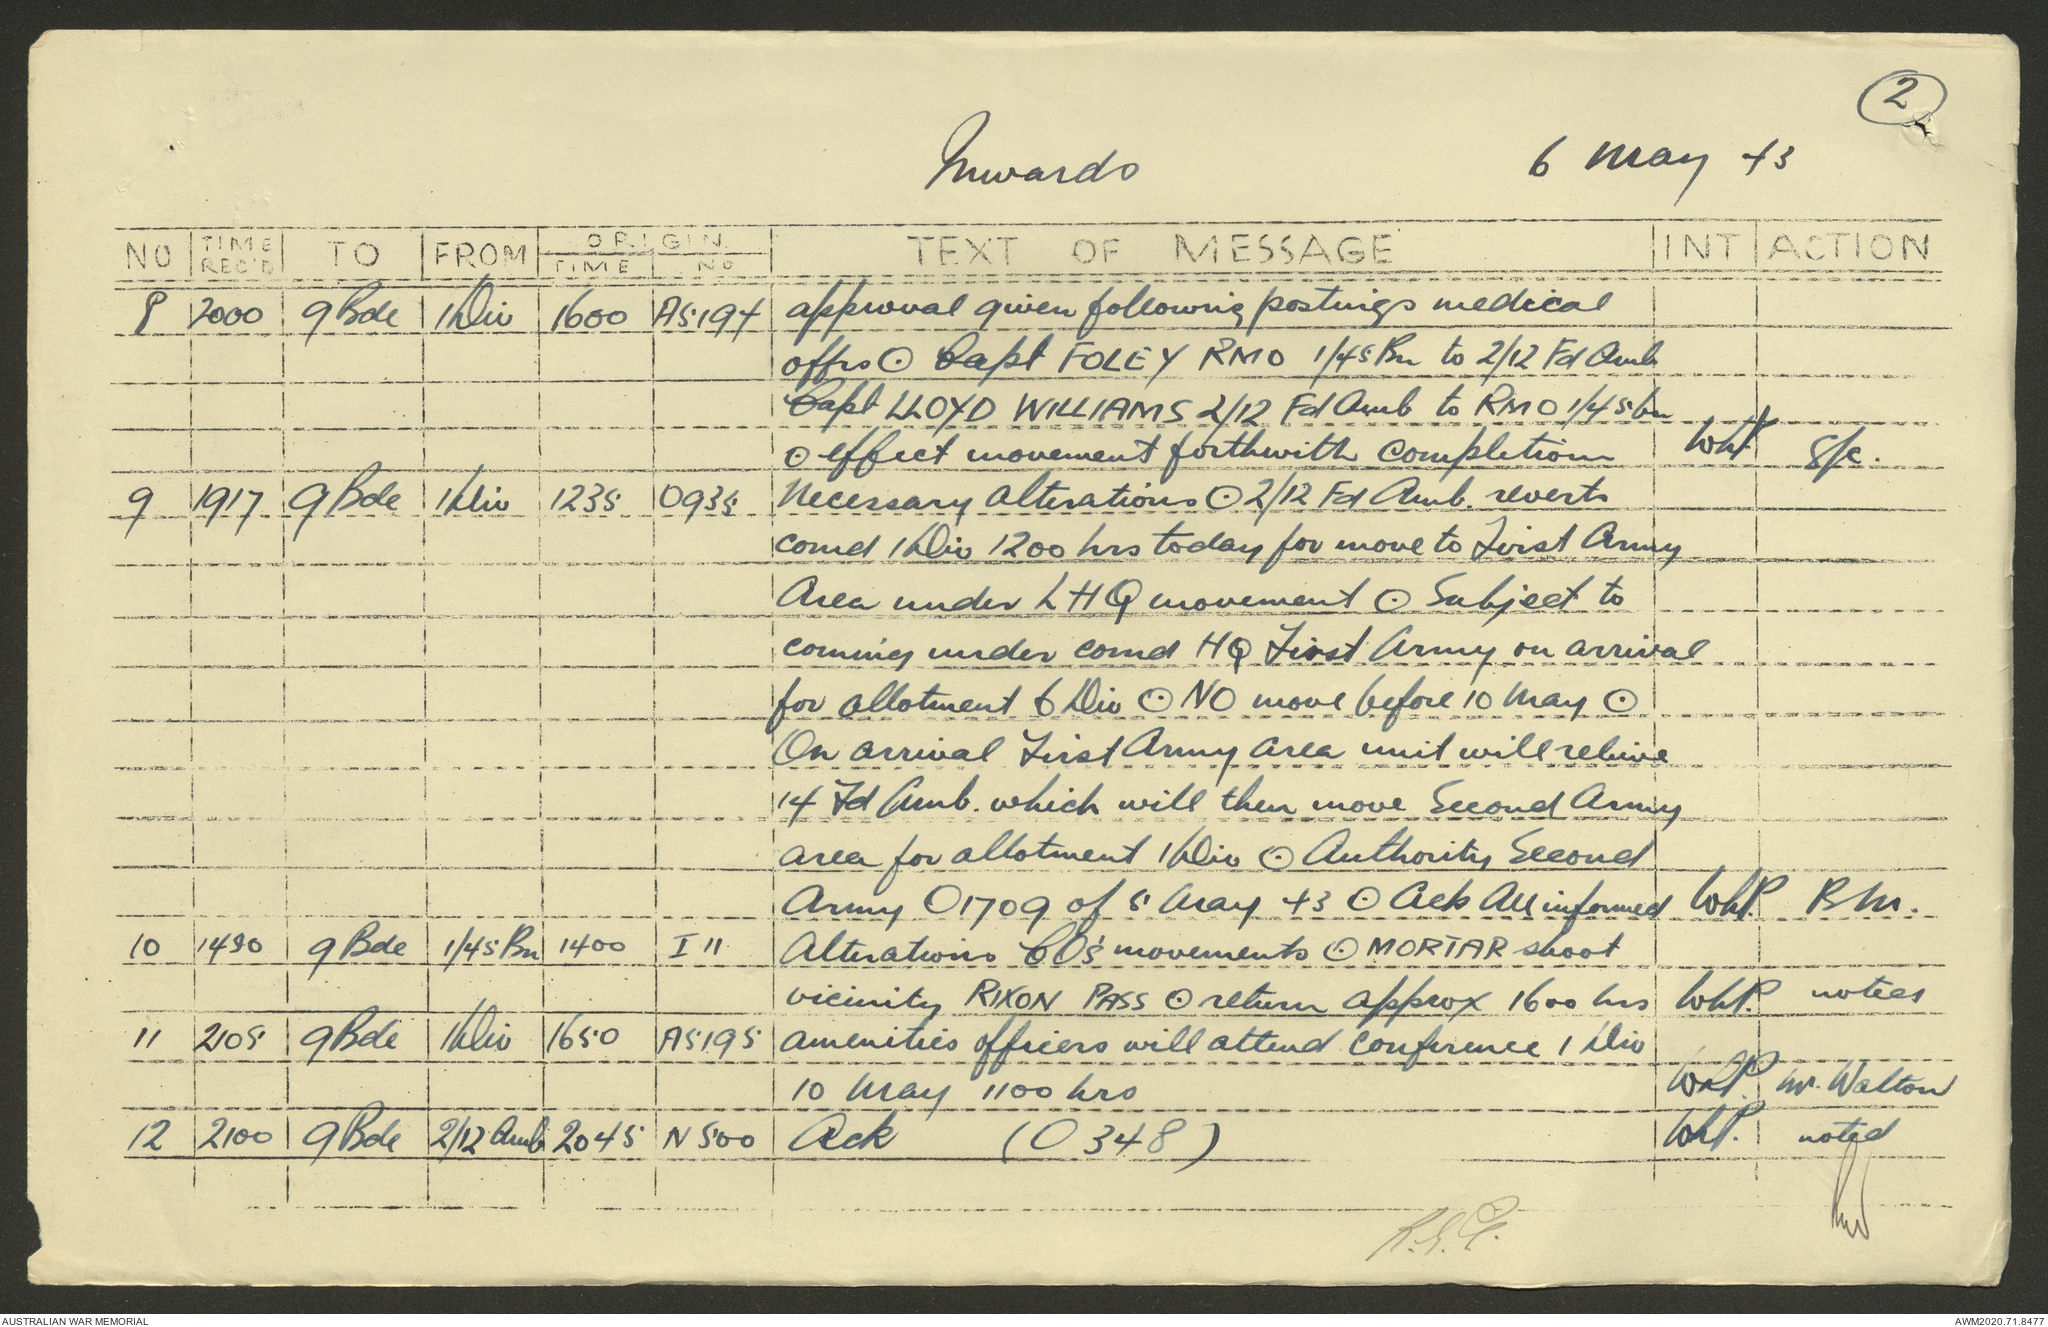 2
Inwards 6 May 43
NO TIME REC'D TO FROM ORIGIN TIME NO TEXT OF MESSAGE INT ACTION
8 2000 9 Bde 1 Div 1600 A5194 approval given following postings medical
offrs ⊙ Capt FOLEY RMO 1/45 Bn to 2/12 Fd Amb
Capt LLOYD WILLIAMS 2/12 Fd Amb to RMO 1/45 bn
⊙ effect movement forthwith completion WhP S/c.
9 1917 9 Bde 1 Div 1235 O935 Necessary alterations ⊙ 2/12 Fd Amb. reverts
comd 1 Div 1200 hrs today for move to First Army
Area under LHQ movement ⊙ Subject to
coming under comd HQ First Army on arrival
for allotment 6 Div ⊙ NO move before 10 May ⊙
On arrival First Army area unit will relieve
14 Fd Amb. which will then move Second Army
area for allotment 1 Div ⊙ Authority Second
Army O1709 of 5 May 43 ⊙ Ack All informed WhP. BM.
10 1430 9 Bde 1/45 Bn 1400 I 11 Alterations CO's movements ⊙ MORTAR shoot
vicinity RIXON PASS ⊙ return approx 1600 hrs WhP. noted
11 2105 9 Bde 1 Div 1650 A5195 amenities officers will attend conference 1 Div
10 May 1100 hrs WhP. Mr. Walton
12 2100 9 Bde 2/12 Amb 2045 N500 Ack (O348) WhP. noted
AUSTRALIAN WAR MEMORIAL AWM2020.71.8477